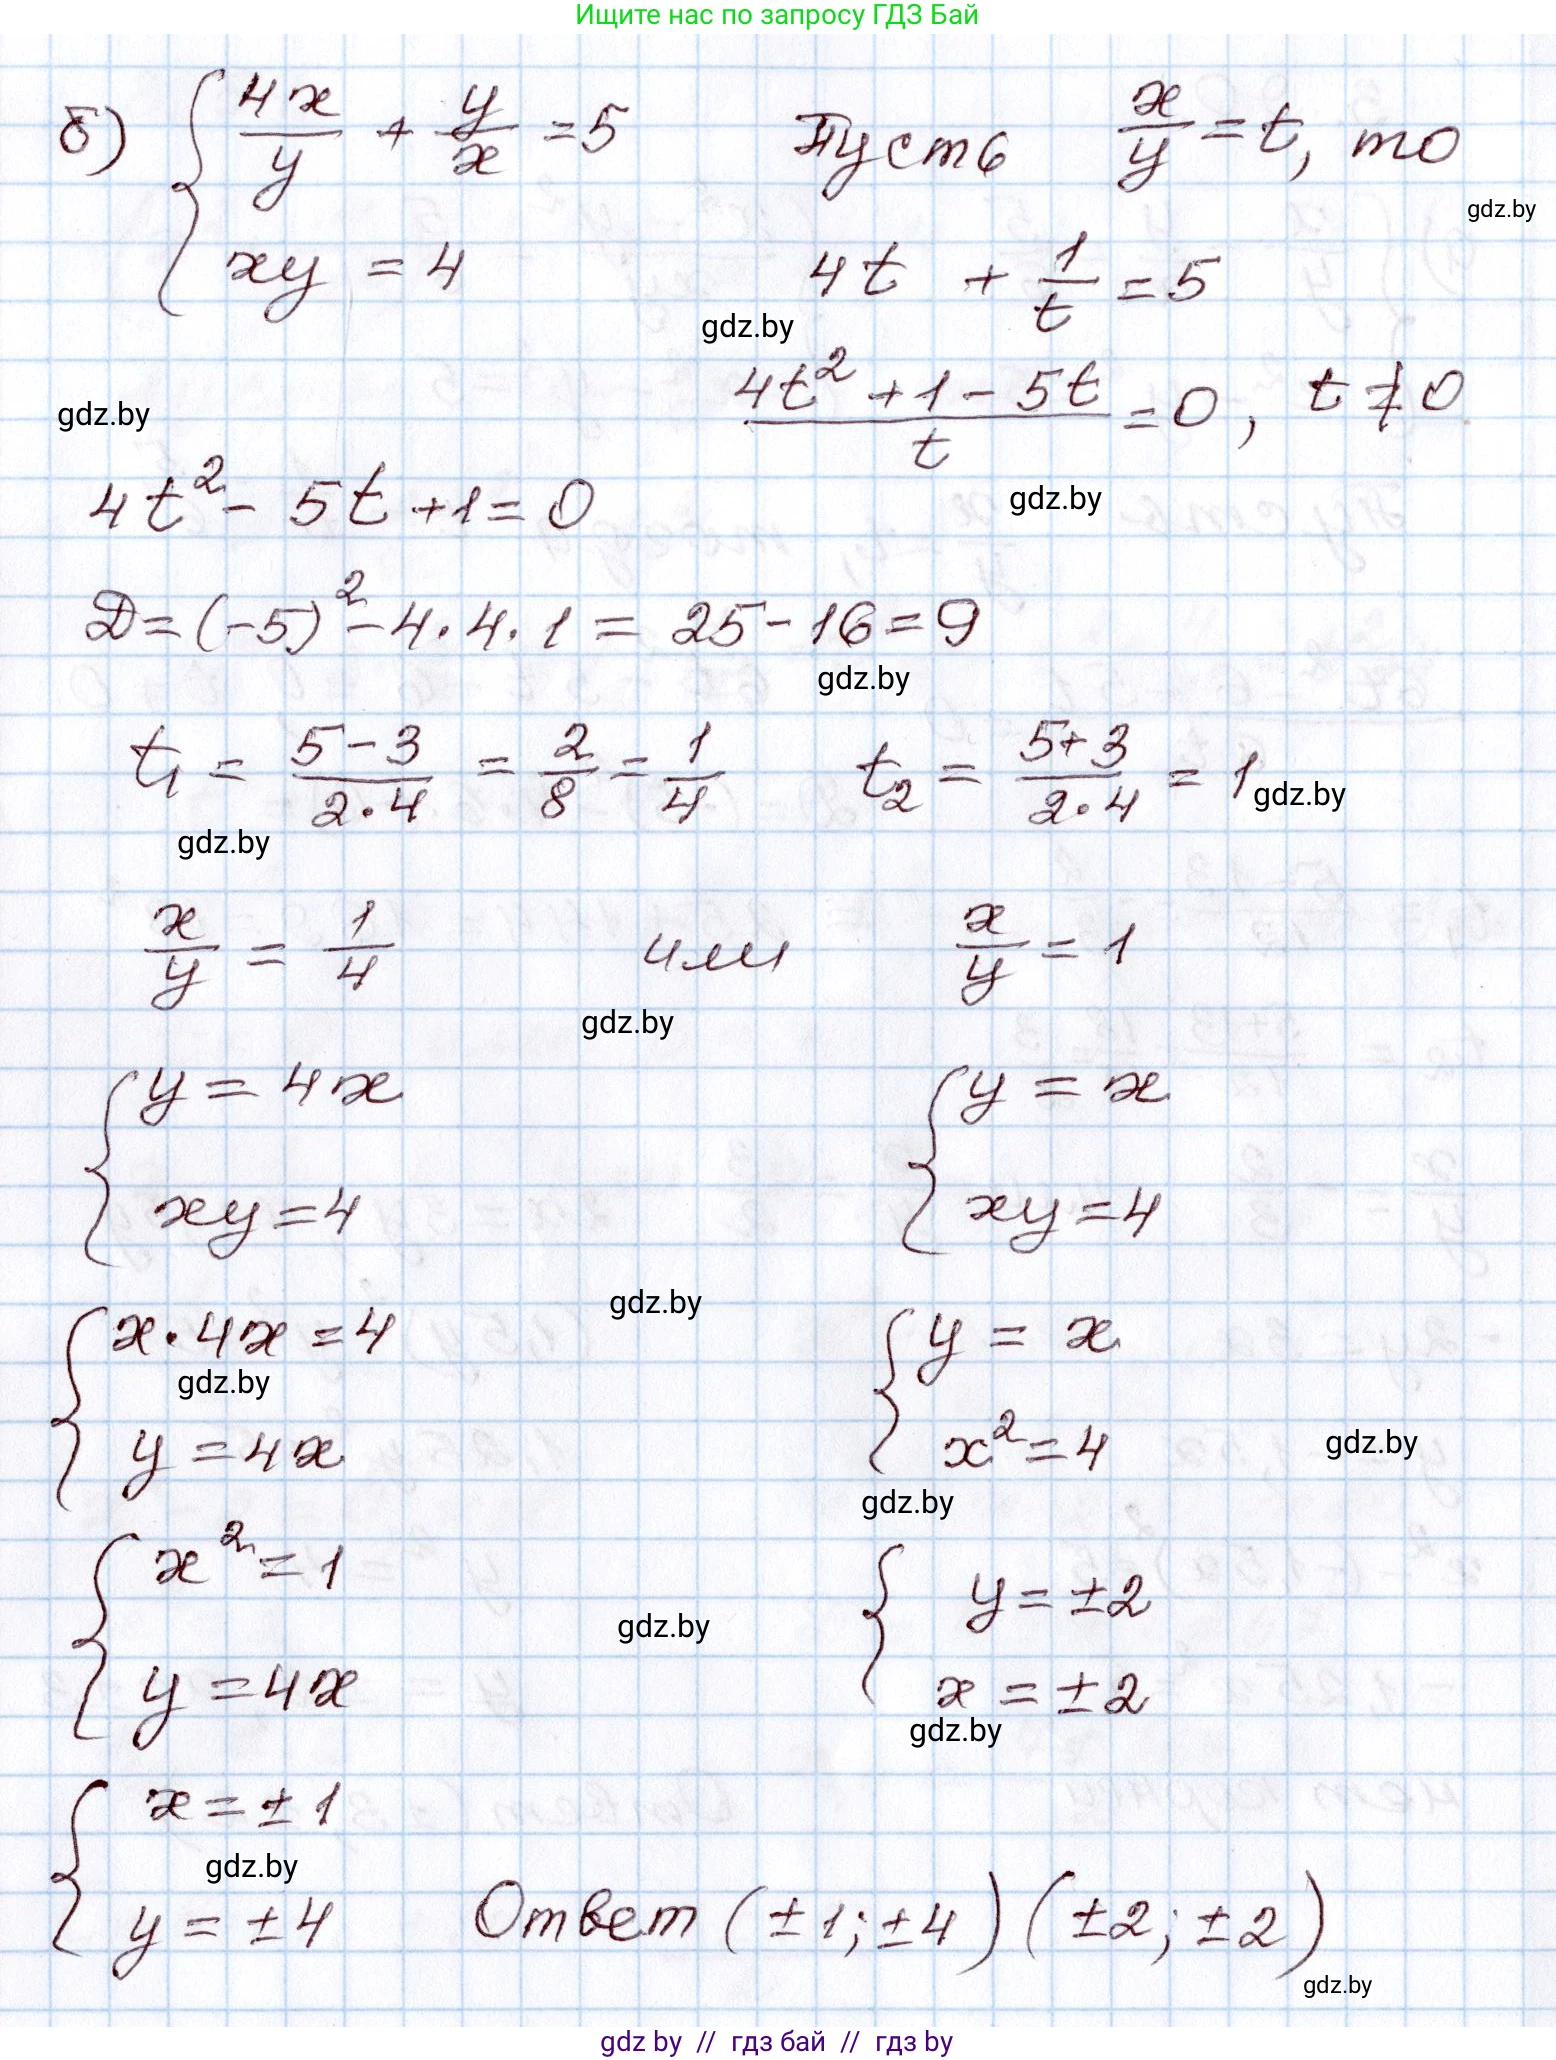 Ищите нас по запросу ГДЗ Бай
б) { 4x/y + y/x = 5   Пусть x/y = t, то
gdz.by
xy = 4   4t + 1/t = 5
gdz.by
(4t² + 1 - 5t)/t = 0, t ≠ 0
gdz.by
gdz.by
4t² - 5t + 1 = 0
D = (-5)² - 4·4·1 = 25 - 16 = 9
gdz.by
t₁ = (5-3)/(2·4) = 2/8 = 1/4   t₂ = (5+3)/(2·4) = 1
gdz.by
gdz.by
x/y = 1/4   или   x/y = 1
gdz.by
{ y = 4x   { y = x
xy = 4   xy = 4
gdz.by
{ x·4x = 4   { y = x
gdz.by
y = 4x   x² = 4
gdz.by
gdz.by
{ x² = 1   { y = ±2
gdz.by
y = 4x   x = ±2
gdz.by
{ x = ±1
gdz.by
y = ±4   Ответ (±1; ±4) (±2; ±2)
gdz.by
gdz by // гдз бай // гдз by